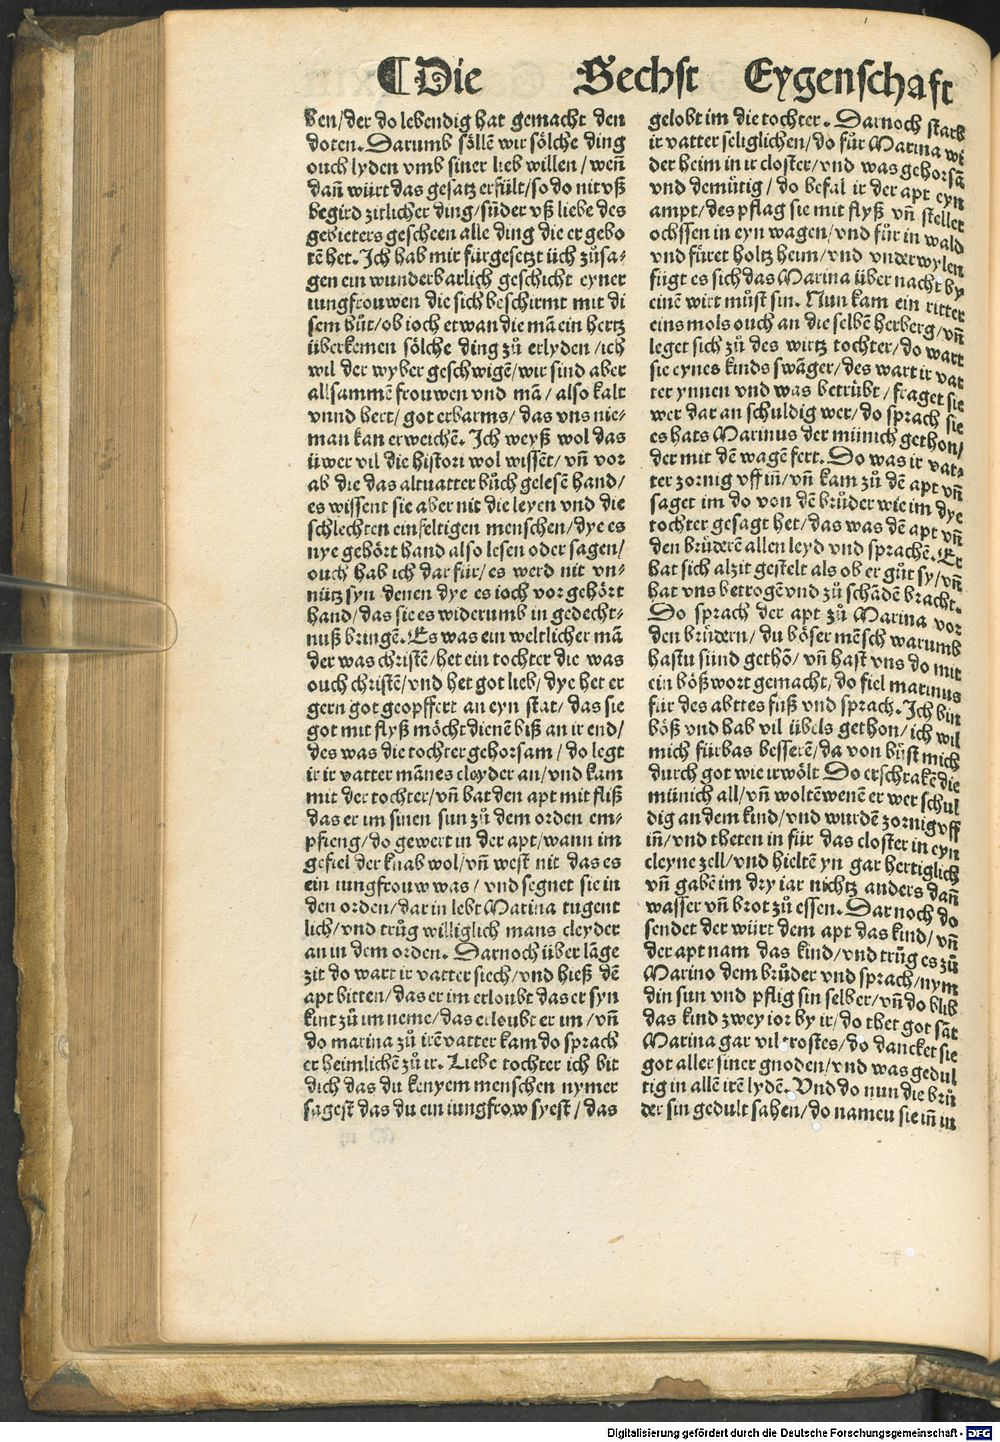 ¶Die Sechst Eygenschaft
ben/der do lebendig hat gemacht den
doten. Darumb söllē wir sölche ding
ouch lyden vmb siner lieb willen/weñ
dañ würt das gesatz erfült/so do nit vß
begird zitlicher ding/sũder vß liebe des
gebieters gescheen alle ding die er gebo
tē het. Ich hab mir fürgesetzt üch zůsa-
gen ein wunderbarlich geschicht eyner
iungfrouwen die sich beschirmt mit di
sem hůt/ob ioch etwan die mā ein hertz
überkemen sölche ding zů erlyden/ich
wil der wyber geschwigē/wir sind aber
allsammē frouwen vnd mā/also kalt
vnnd hert/got erbarms/das vns nie-
man kan erweichē. Ich weyß wol das
üwer vil die histori wol wissēt/vñ vor
ab die das altuatter bůch gelesē hand/
es wissent sie aber nit die leyen vnd die
schlechten einfeltigen menschen/dye es
nye gehört hand also lesen oder sagen/
ouch hab ich dar für/es werd nit vn-
nütz syn denen dye es ioch vor gehört
hand/das sie es widerumb in gedecht-
nuß bringē. Es was ein weltlicher mā
der was christē/het ein tochter die was
ouch christē/vnd het got lieb/dye het er
gern got geopffert an eyn stat/das sie
got mit flyß möcht dienē biß an ir end/
des was die tochter gehorsam/do legt
ir ir vatter mānes cleyder an/vnd kam
mit der tochter/vñ bat den apt mit fliß
das er im sinen sun zů dem orden em-
pfieng/do gewert in der apt/wann im
gefiel der knab wol/vñ west nit das es
ein iungfrouw was/vnd segnet sie in
den orden/dar in lebt Marina tugent
lich/vnd trůg williglich mans cleyder
an in dem orden. Darnoch über lāge
zit do wart ir vatter siech/vnd hieß dē
apt bitten/das er im erloubt das er syn
kint zů im neme/das erloubt er im/vñ
do marina zů irē vatter kam do sprach
er heimlichē zů ir. Liebe tochter ich bit
dich das du kenyem menschen nymer
sagest das du ein iungfrow syest/das
gelobt im die tochter. Darnoch starb
ir vatter seliglichen/do für Marina wi
der heim in ir closter/vnd was gehorsā
vnd demütig/do befal ir der apt eyn
ampt/des pflag sie mit flyß vñ stellet
ochssen in eyn wagen/vnd für in wald
vnd füret holtz heim/vnd vnderwylen
fügt es sich das Marina über nacht by
einē wirt můst sin. Nun kam ein ritter
eins mols ouch an die selbē herberg/vñ
leget sich zů des wirtz tochter/do wart
sie eynes kinds swāger/des wart ir vat
ter ynnen vnd was betrübt/fraget sie
wer dar an schuldig wer/do sprach sie
es hats Marinus der münich gethon/
der mit dē wagē fert. Do was ir vat-
ter zornig vff iñ/vñ kam zů dē apt vñ
saget im do von dē brůder wie im dye
tochter gesagt het/das was dē apt vñ
den brůderē allen leyd vnd sprachē. Er
hat sich alzit gestelt als ob er gůt sy/vñ
hat vns betrogē vnd zů schādē bracht.
Do sprach der apt zů Marina vor
den brůdern/du böser mēsch warumb
hastu sünd gethō/vñ hast vns do mit
ein böß wort gemacht/do fiel marinus
für des abttes fůß vnd sprach. Ich bin
böß vnd hab vil übels gethon/ich wil
mich fürbas besserē/da von bůst mich
durch got wie ir wölt Do erschrakē die
münich all/vñ woltē wenē er wer schul
dig an dem kind/vnd wurdē zornig vff
iñ/vnd theten in für das closter in eyn
cleyne zell/vnd hieltē yn gar hertiglich
vñ gabē im dry iar nichtz anders dañ
wasser vñ brot zů essen. Darnoch do
sendet der würt dem apt das kind/vñ
der apt nam das kind/vnd trůg es zů
Marino dem brůder vnd sprach/nym
din sun vnd pflig sin selber/vñ do blib
das kind zwey ior by ir/do thet got sāt
Marina gar vil trostes/do dancket sie
got aller siner gnoden/vnd was gedul
tig in allē irē lydē. Vnd do nun die brů
der sin gedult sahen/do namen sie iñ in
Digitalisierung gefördert durch die Deutsche Forschungsgemeinschaft - DFG